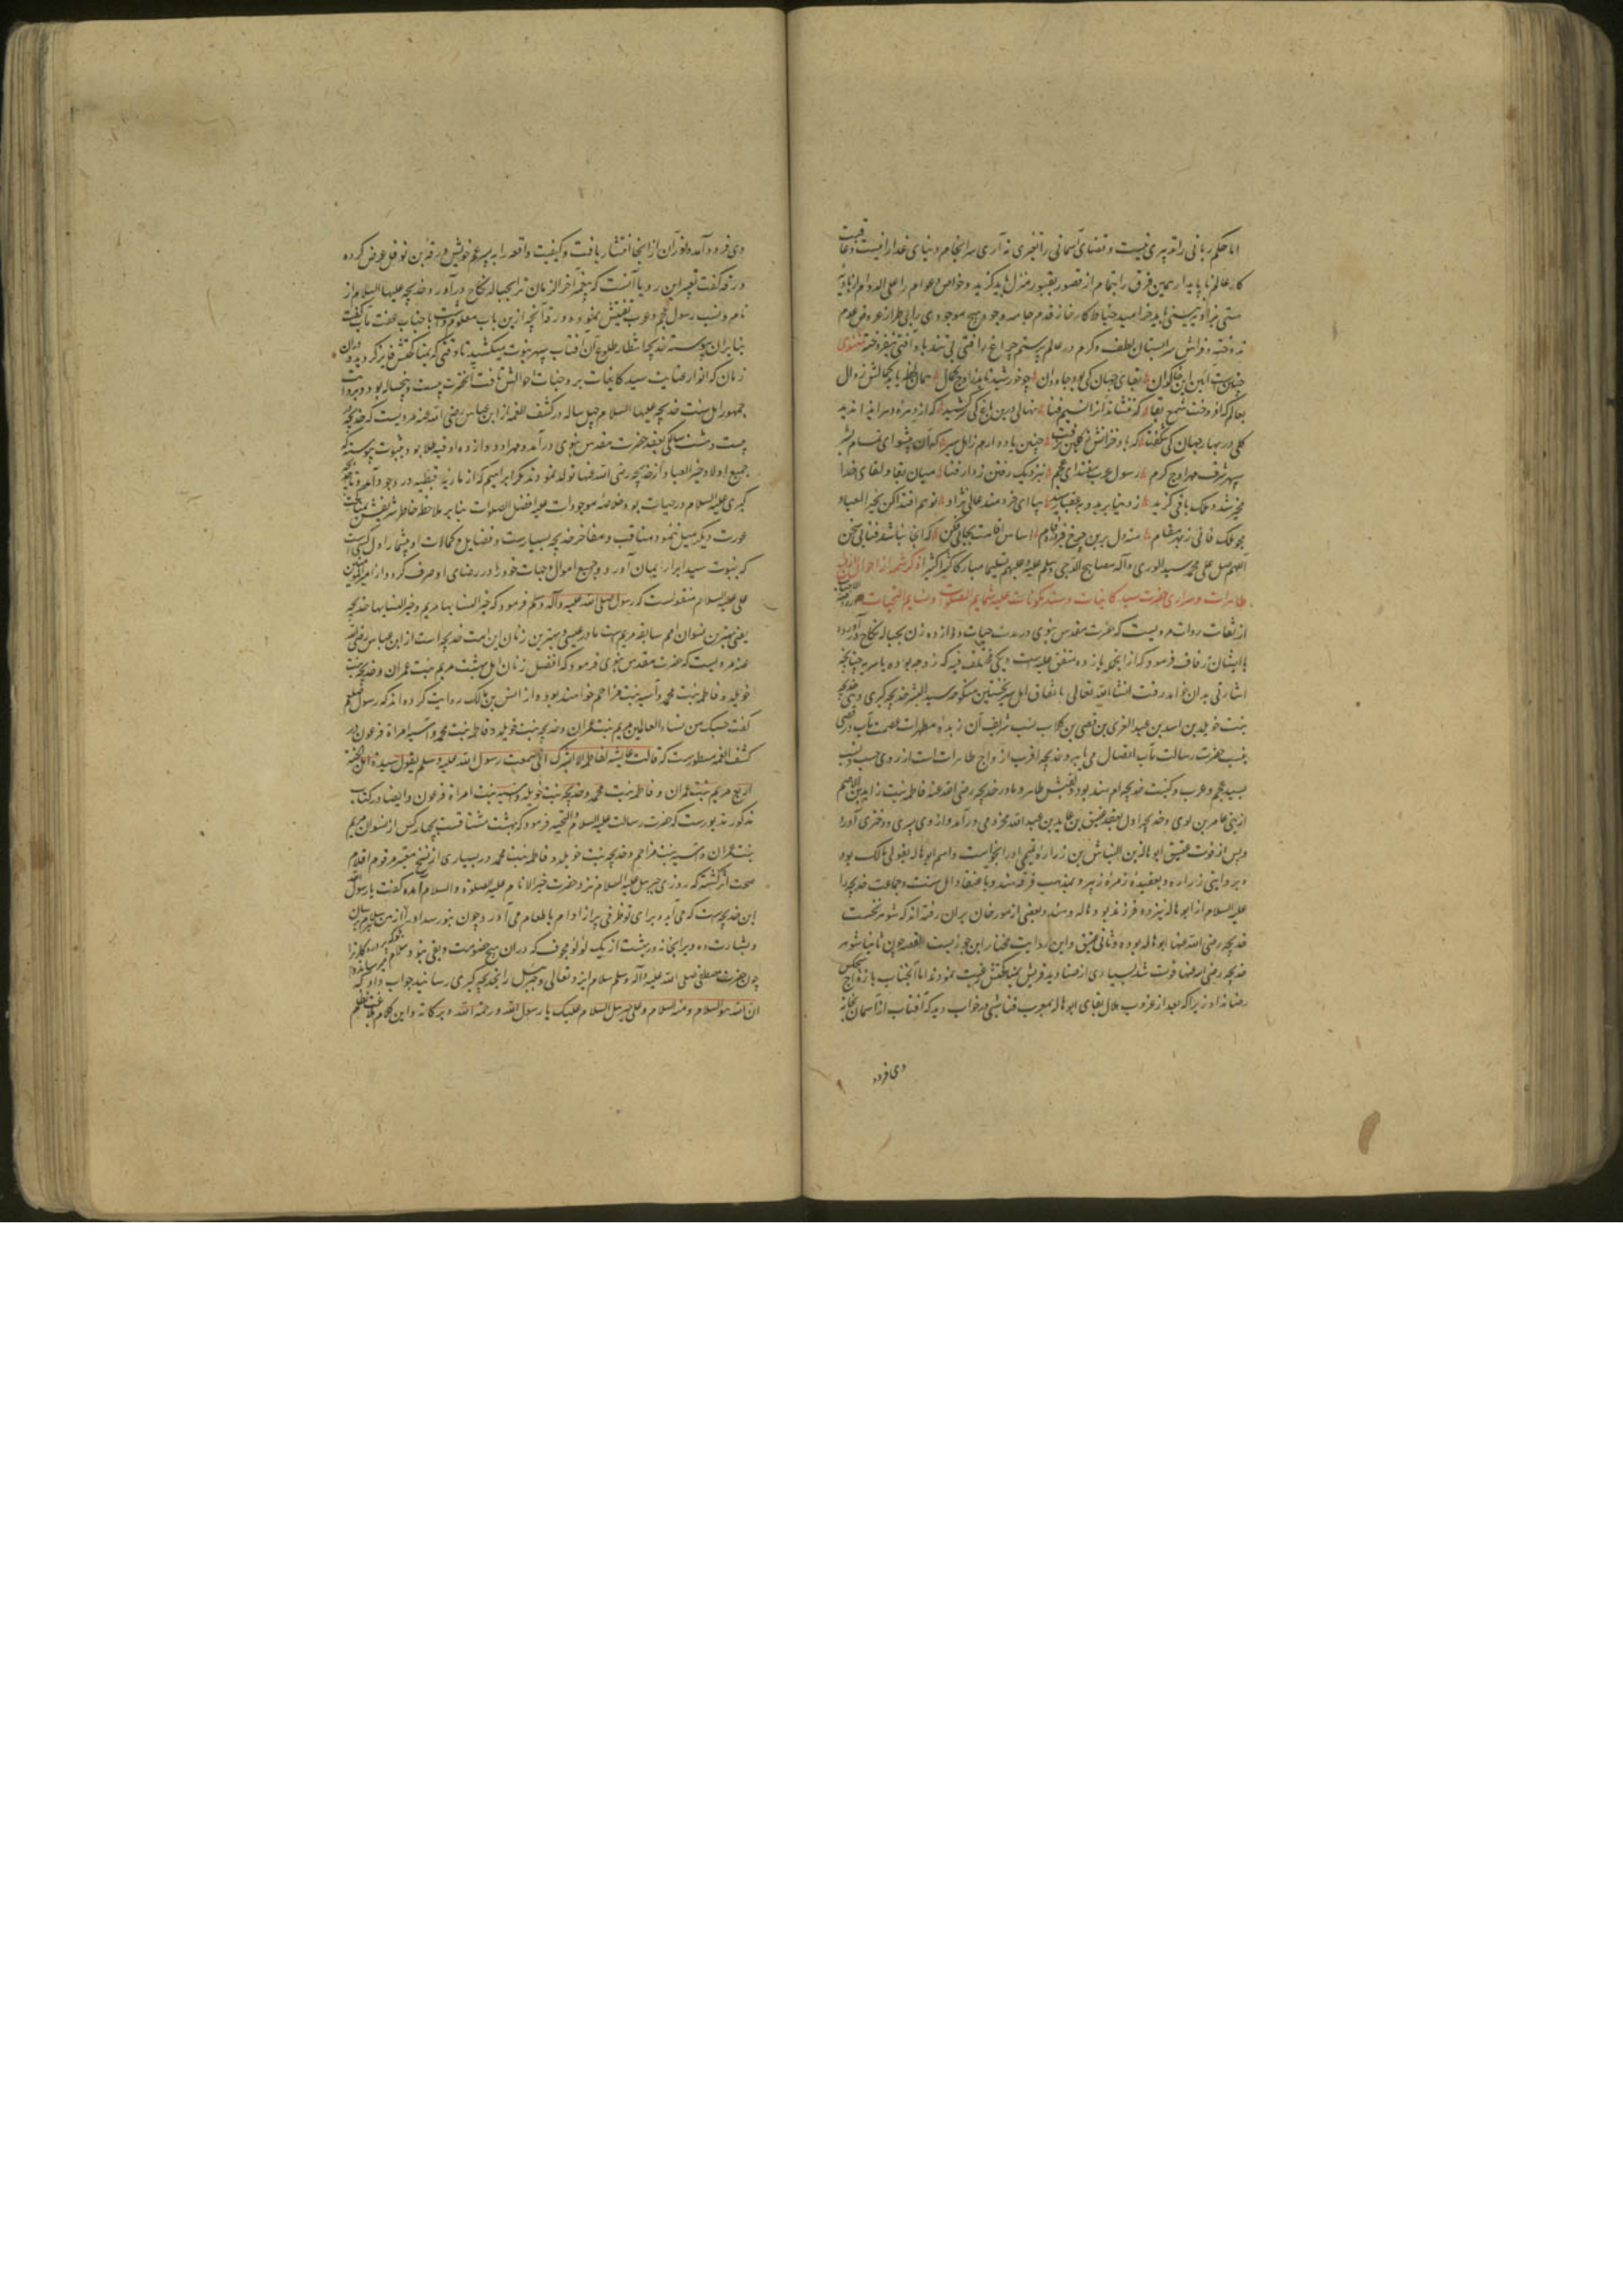 اما حکم ربانی را تدبیری نیست و قضای آسمانی را تغییری نه آری سرانجام دنیای غدار فنیست و عاقبت
کار عالم ناپایدار همین فرق را بتمام از قصور بقبور منزل باید گزید و خواص و عوام را علی الدوام از
هستی بنیستی باید خرامید خیاط کارخانه قدم جامه وجود هیچ موجودی را بی طراز عدم
ندوخته و فراش سرابستان لطف و کرم در عالم چراغ راقتی بی تندباد آفتی نیفروخته مثنوی
چنین است آیین این خاکدان بقای جهان کی بود جاودان چو خورشید تابد ز اوج کمال همان لحظه یابد کمالش زوال
بعالم که افروخت شمع بقا که ننشاندش از نسیم فنا نهالی درین باغ کی سرکشید که از دهر
گلی در بهار جهان کی شکفت که باد خزانش چنین یاد دارم ز اهل سیر که آن پیشوای تمام بشر
سپهر شرف مهر اوج کرم رسول عرب مقتدای عجم بنزدیک رفتن ز دار فنا میان بقا و لقای خدا
مخیر شد و ملک باقی گزید ز دنیا برید و بعقبی رسید بیا ای خردمند عالی نژاد تو هم اقتدا کن بخیر العباد
مجو ملک فانی منه دل برین چرخ فیروزه فام اساس اقامت بجایی فکن که آنجا نباشد فنا بی سخن
اللهم صل علی محمد سید الوری و آله مصابیح الدجی و سلم علیه و علیهم تسلیما مبارکا کثیرا کثیرا ذکر شمه از احوال ازواج
طاهرات و سراری حضرت سید کاینات و سند مکونات علیه شمایم الصلوات و نسایم التحیات
از ثقات روات مرویست که حضرت مقدس نبوی در مدت حیات دوازده زن بحباله نکاح درآورده
با ایشان زفاف فرمود که از آنجمله یازده متفق علیه است و یکی مختلف فیه که زوجه بوده یا سریه چنانچه
اشارتی بدان خواهد رفت انشاء الله تعالی باتفاق اهل سیر نخستین منکوحه سید البشر خدیجه کبری بود و هی خدیجه
بنت خویلد بن اسد بن عبد العزی بن قصی بن کلاب نسب شریف آن زبده مطهرات عصمت مآب در قصی
بنسب حضرت رسالت مآب اتصال می یابد و خدیجه اقرب ازواج طاهرات است از روی حسب و نسب
بسید عجم و عرب و کنیت خدیجه ام هند بود و لقبش طاهره و مادر خدیجه رضی الله عنها فاطمه بنت زایده بن الاصم
از بنی عامر بن لوی و خدیجه اول بعقد عتیق بن عاید بن عبد الله مخزومی درآمد و از وی پسری و دختری آورد
و پس از فوت عتیق ابو هاله بن النباش بن زراره تمیمی او را بخواست و اسم ابو هاله بقولی مالک بود
و بروایتی زراره و بعقیده زمره زبیر و بمذهب فرقه هند و باعتقاد اهل سنت و جماعت خدیجه را
علیه السلام از ابو هاله نیز دو فرزند بود هاله و هند و بعضی از مورخان بران رفته اند که شوهر نخست
خدیجه رضی الله عنها ابو هاله بوده و ثانی عتیق و این روایت مختار ابن جوزیست القصه چون ثانیا شوهر
خدیجه رضی الله عنها فوت شد بسیاری از صنادید قریش بمناکحتش رغبت نمودند اما آنجناب بازدواج هیچکس
رضا نداد زیرا که بعد از غروب هلال بقای ابو هاله بمغرب فنا شبی در خواب دید که آفتاب از آسمان بخانه
وی فرود
وی فرود آمد و نور آن از آنجا انتشار یافت و کیفیت واقعه را به پسر عم خویش ورقه بن نوفل عرض کرده
ورقه گفت تعبیر این رویا آنست که پیغمبر آخر الزمان ترا بحباله نکاح درآورد و خدیجه علیها السلام از
نام و نسب رسول عجم و عرب تفتیش نموده ورقه آنچه ازین باب معلوم داشت با جناب عفت مآب گفت
بنابران پیوسته خدیجه انتظار طلوع آن آفتاب سپهر نبوت میکشید تا وقتی که بمناکحتش فایز گردید و دران
زمان که انوار عنایت سید کاینات بر وجنات احوالش تافت آنحضرت بیست و پنج ساله بود و بروایت
جمهور اهل سنت خدیجه علیها السلام چهل ساله و در کشف الغمه از ابن عباس رضی الله عنه مرویست که خدیجه
بیست و هشت سالگی بعقد حضرت مقدس نبوی درآمد و مهر او دوازده اوقیه طلا بود و بثبوت پیوسته که
جمیع اولاد خیر العباد از خدیجه رضی الله عنها تولد نمودند مگر ابراهیم که از ماریه قبطیه در وجود آمد و تا خدیجه
کبری علیه السلام در حیات بود خلاصه موجودات علیه افضل الصلوات بنابر ملاحظه خاطر شریفش بمناکحت
عورت دیگر میل ننمود مناقب و مفاخر خدیجه بسیارست و فضایل و کمالات او بیشمار اول کسی است
که بنبوت سید ابرار ایمان آورد و جمیع اموال و جهات خود را در رضای او صرف کرد و از امیر المومنین
علی علیه السلام منقولست که رسول صلی الله علیه و آله و سلم فرمود که خیر النسایها مریم و خیر النسایها خدیجه
یعنی بهترین نسوان امم سابقه مریم است مادر عیسی و بهترین زنان این امت خدیجه است از ابن عباس رضی الله
عنه مرویست که حضرت مقدس نبوی فرمود که افضل زنان اهل بهشت مریم بنت عمران و خدیجه بنت
خویلد و فاطمه بنت محمد و آسیه بنت مزاحم خواهند بود و از انس بن مالک روایت کرده اند که رسول صلعم
گفت حسبک من نساء العالمین مریم بنت عمران و خدیجه بنت خویلد و فاطمه بنت محمد و آسیه امراة فرعون و در
کشف الغمه مسطورست که قالت عایشه لفاطمه الا ابشرک انی سمعت رسول الله علیه و سلم یقول سیدة اهل الجنه
اربع مریم بنت عمران و فاطمه بنت محمد و خدیجه بنت خویلد و آسیه بنت امراة فرعون و ایضا در کتاب
مذکور مزبورست که حضرت رسالت علیه السلام و التحیه فرمود که بهشت مشتاقست بچهار کس از نسوان مریم
بنت عمران و آسیه بنت مزاحم و خدیجه بنت خویلد و فاطمه بنت محمد در بسیاری از نسخ معتبر مرقوم اقلام
صحت اثر گشته که روزی جبرئیل علیه السلام نزد حضرت خیر الانام علیه الصلوة و السلام آمده گفت یا رسول الله
این خدیجه است که می آید و برای تو ظرفی پر از ادام یا طعام می آورد و چون بتو رسد او را از من سلام برسان
و بشارت ده ویرا بخانه در بهشت از یک لؤلؤ مجوف که دران هیچ خصومت و تعبی نبود
چون حضرت مصطفی صلی الله علیه و آله و سلم سلام ایزد تعالی و جبرئیل را بخدیجه کبری رسانید جواب داد که
ان الله هو السلام و منه السلام و علی جبرئیل السلام علیک یا رسول الله و رحمة الله و برکاته و این کلام